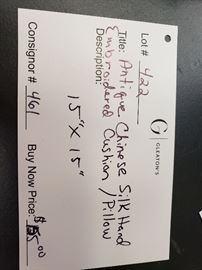 G
GLEATON'S
Lot# 422
Title: Antique Chinese Silk Hand
Embroidered Cushion / Pillow
Description:
15" X 15"
Consignor # 461 Buy Now Price: $ 00